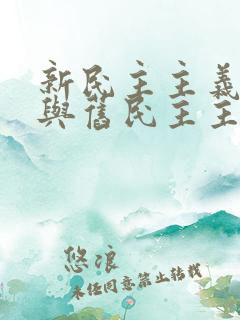 新民主主義
與舊民主主
悠浪
未经同意禁止转载